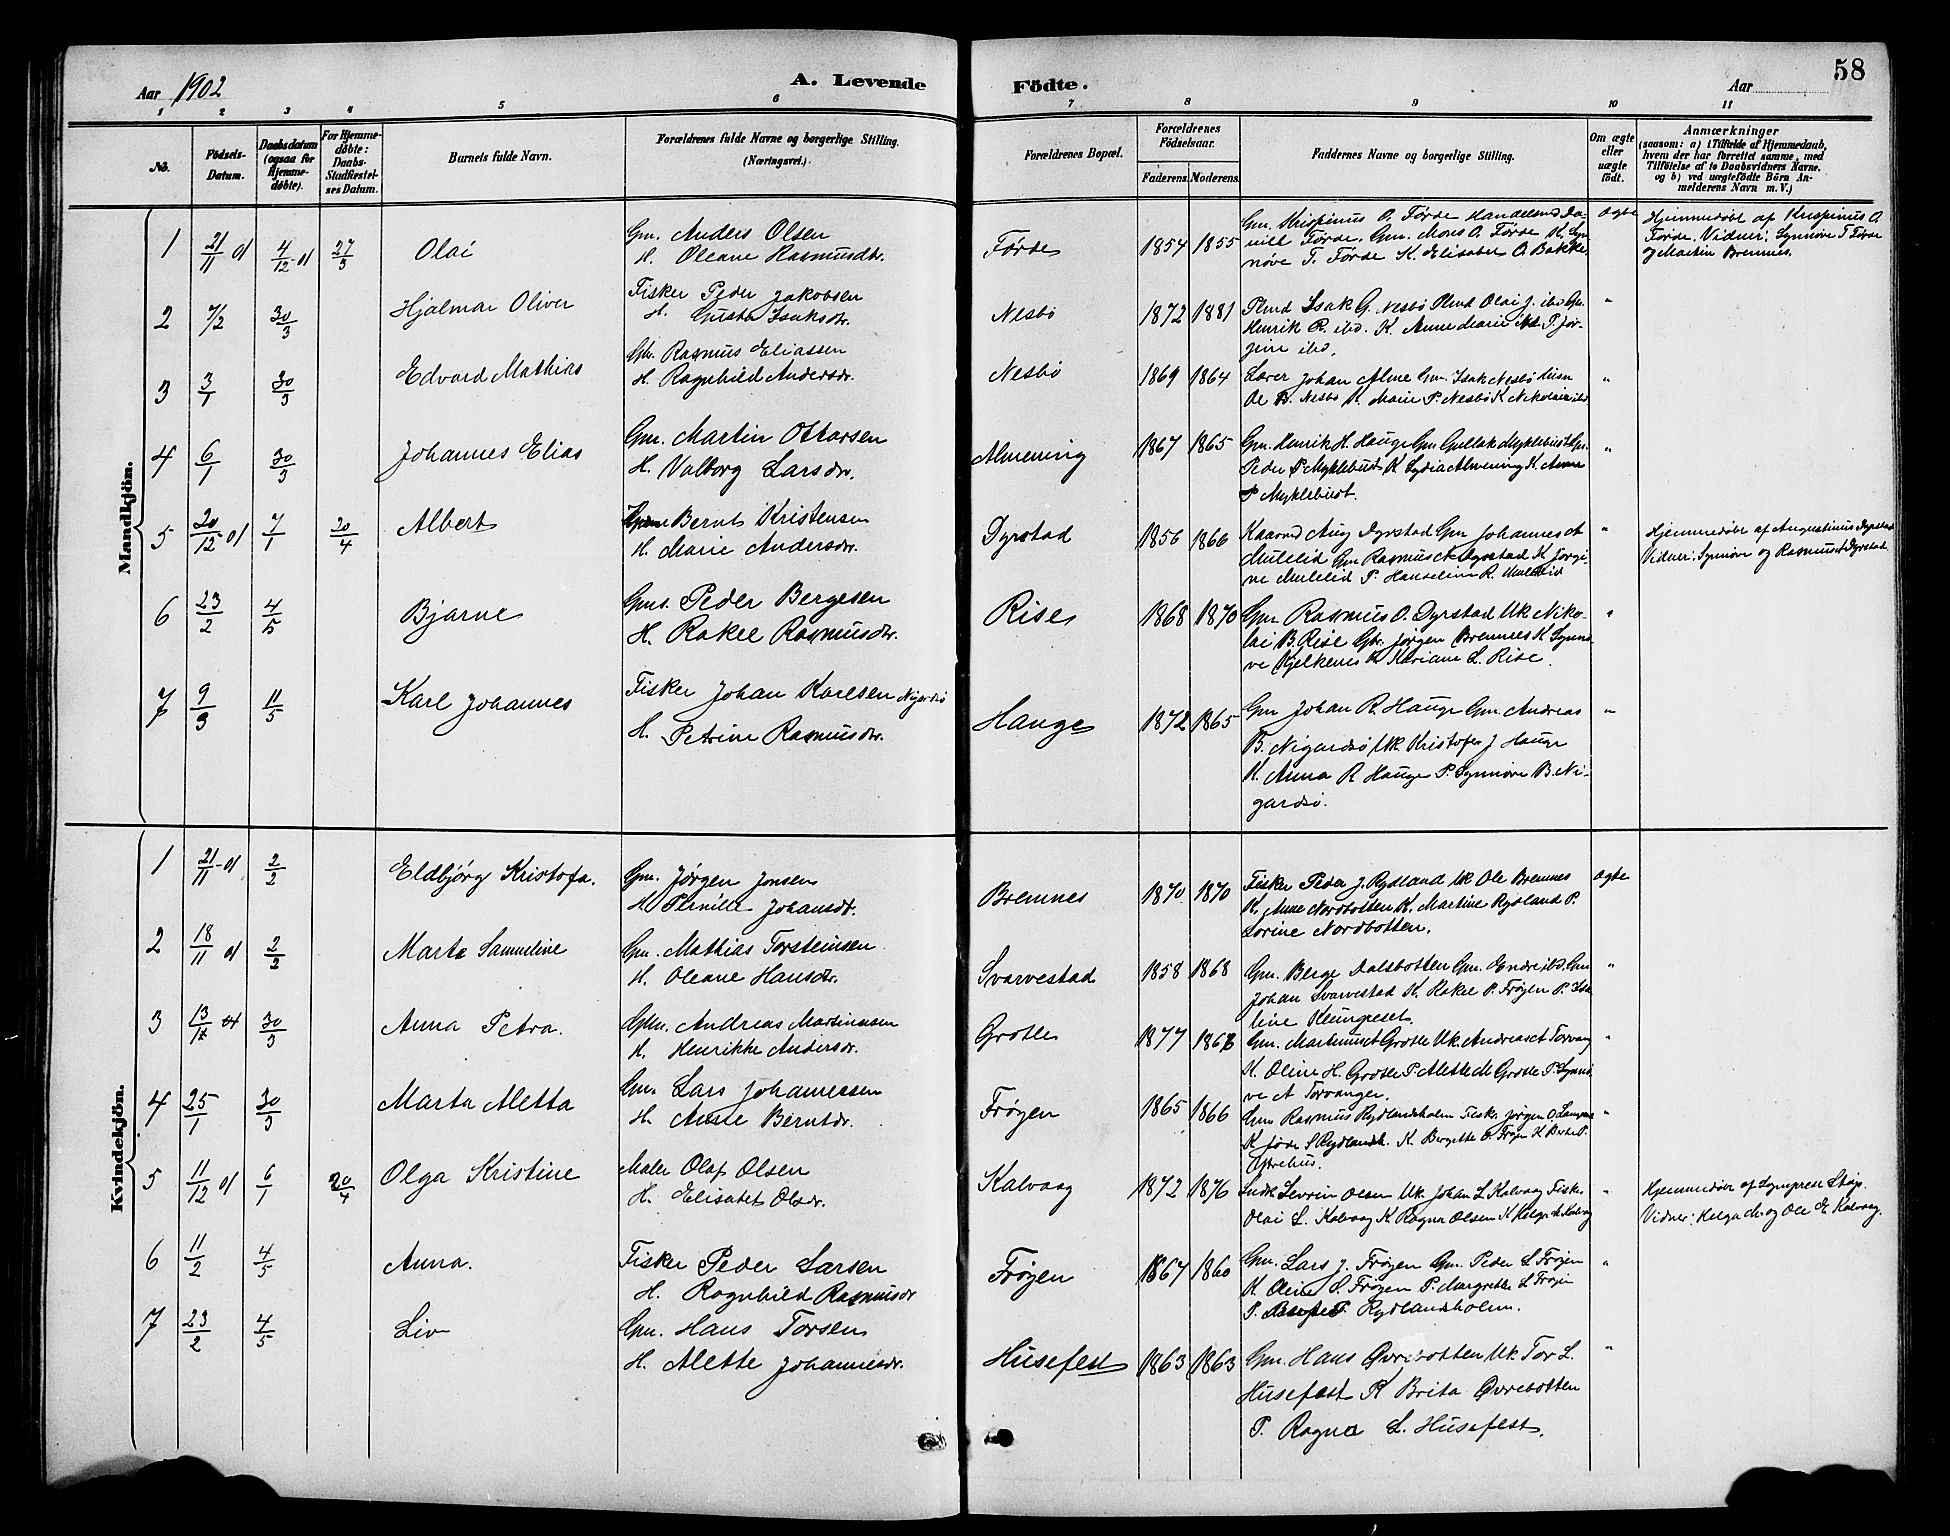 58
Aar 1902
A. Levende
Födte.
Aar
1 2 3 4 5 6 7 8 9 10 11
No.
Födsels-Datum.
Daabsdatum (ogsaa for Hjemme-döbte).
For Hjemme-döbte: Daabs-Stadfæstel-ses Datum.
Barnets fulde Navn.
Forældrenes fulde Navne og borgerlige Stilling. (Næringsvei.)
Forældrenes Bopæl.
Forældrenes Födselsaar.
Faderens. Moderens.
Faddernes Navne og borgerlige Stilling.
Om ægte eller uægte födt.
Anmærkninger (saasom: a) i Tilfælde af Hjemmedaab, hvem der har forrettet samme, med Tilföielse af to Daabsvidners Navne, og b) ved uægtefödte Börn An-melderens Navn m. V.)
Mandkjön.
1 21/11 01 4/12 01 27/3 Olai
Gm. Anders Olsen
H. Oleane Rasmusdtr.
Førde 1854 1855
Gm. Krispinus O. Førde Handelsmd Da-
niel Førde. Gm. Mons O. Førde K. Syn-
nøve T. Førde K. Elisabet O. Bakke.
Ægte
Hjemmedøbt af Krispinus O
Førde. Vidner: Synnøve T Førde
og Martin Bremnes.
2 7/2 30/3 Hjalmar Oliver
Fisker Peder Jakobsen
H. Gusta Isaksdtr.
Nesbø 1872 1881
Plmd Isak G. Nesbø Plmd Olai J. ibd Gm.
Henrik R. ibd. K. Anne Marie P. Jør-
gine ibd.
"
3 3/1 30/3 Edvard Mathias
Gbr. Rasmus Eliassen
H. Ragnhild Andersdr.
Nesbø 1869 1864
Lærer Johan Alme Gm. Isak Nesbø
Ole B. Nesbø K. Marie P. Nesbø K Nikolaie ibd
"
4 6/1 30/3 Johannes Elias
Gm. Martin Ottarsen
H. Valborg Larsdr.
Almening 1867 1865
Gm. Henrik H. Hauge Gm Gullak Myklebust Gm.
Peder P Myklebust K Lydia Almening K. Anne
P Myklebust.
"
5 20/12 01 7/1 20/4 Albert
Bernt Kristensen
H. Marie Andersdr.
Dyrstad 1856 1866
Kaarmd Aug Dyrstad Gm Johannes A
Muleleid Gm Rasmus A Dyrstad K Jørgi-
ne Muleleid P. Hanseline R. Muleleid
"
Hjemmedøbt af Augustinus Dyrstad
Vidner: Synnøve og Rasmus A Dyrstad.
6 23/2 4/5 Bjarne
Gms. Peder Bergesen
H. Rakel Rasmusdtr.
Rise 1868 1870
Gm. Rasmus O. Dyrstad Uk Niko-
lai B. Rise Gbr. Jørgen Bremnes K Synnø-
ve Hjelkenes K Kariane L. Rise.
"
7 9/3 11/5 Karl Johannes
Fisker Johan Karlsen Nigardsø
H. Petrine Rasmusdtr.
Hauge 1872 1865
Gm Johan R. Hauge Gm. Andreas
B. Nigardsø Uk Kristofer J Hauge
K. Anna R Hauge P. Synnøve B. Ni-
gardsø.
"
Kvindekjön.
1 21/11 01 2/2 Eldbjörg Kristofa.
Gm. Jørgen Jonsen
H. Pernille Johansdt.
Bremnes 1870 1870
Fisker Peder J. Rydland Uk Ole Bremnes
K. Anne Nordbotten K. Martine Rydland P.
Lorine Nordbotten.
Ægte
2 18/11 01 2/2 Marta Sammeline
Gm. Mathias Torsteinsen
H. Oleane Hansdtr.
Svarvestad 1858 1868
Gm. Berge Dalsbotten Gm. Endre ibd. Gm
Johan Svarvestad K. Rakel P. Frøyen P.
line Klungreset.
"
3 13/12 01 30/3 Anna Petra.
Andreas Martinusen
H. Henrikke Andersdr.
Grotle 1877
Gm. Martinus Grotle Uk. Andreas Torvang
K. Oline H. Grotle P. Alette M Grotle P. Synnø-
ve A Torvanger.
"
4 25/1 30/3 Marta Aletta
Gm. Lars Johannessen
H. Anne Berntdr.
Frøyen 1865 1866
Gm Rasmus Rydlandsholm Fisk. Jørgen O
K Jøde S Rydlandh. K. Bergette O. Frøyen K Berte P.
"
5 11/12 01 6/1 20/4 Olga Kristine
Maler Olaf Olsen
H. Elisabet Olsdr.
Kalvaag 1872 1876
Sevrin Olsen Uk. Johan L Kalvaag Fisker
Olai L. Kalvaag K Ragna Olsen K Helga M Kalvaag
"
Hjemmedøbt af
Vidner: Helga M. og Ole E Kalvaag.
6 11/2 4/5 Anna.
Fisker Peder Larsen
H. Ragnhild Rasmusdr
Frøyen 1867 1860
Gm. Lars J. Frøyen Gm. Peder L Frøyen
K Oline S. Frøyen P. Margrethe L Frøyen
P. Rydlandsholm.
"
7 23/2 4/5 Liv
Gm. Hans Torsen
H. Alette Johannesdr.
Husefest 1863 1863
Gm. Hans Øvrebotten Uk. Tor L.
Husefest K Brita Øvrebotten
P. Ragna L. Husefest.
"